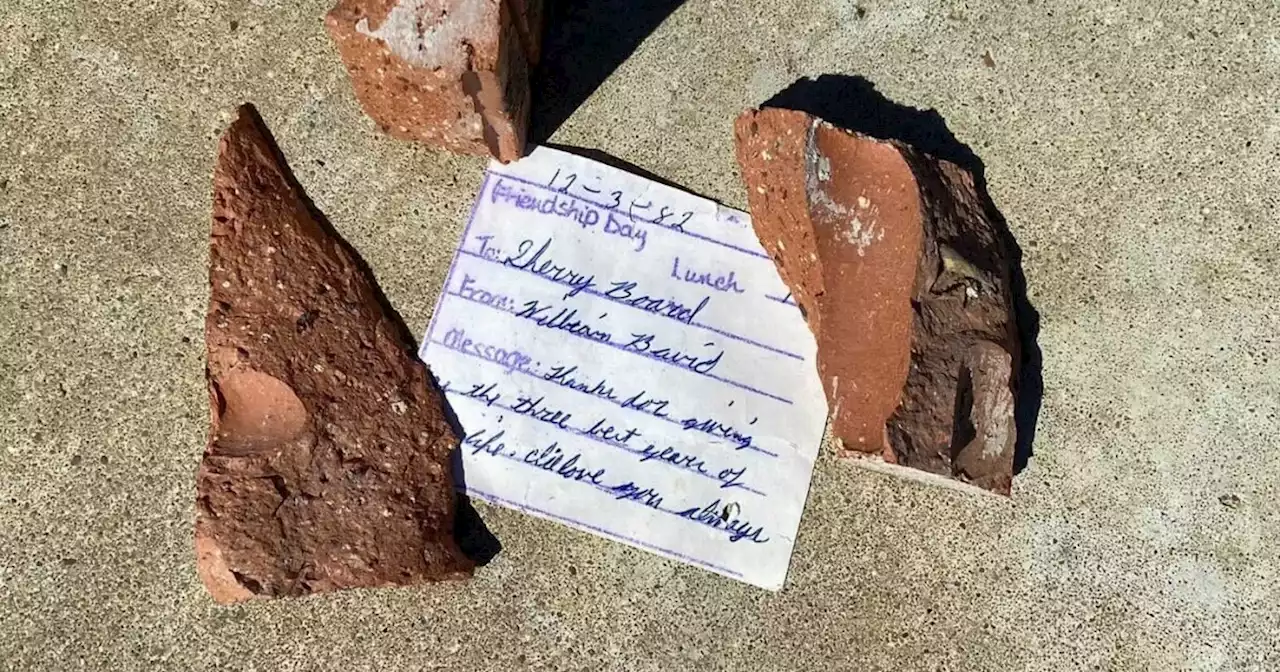 12-3-82
Friendship Day
Lunch
To: Sherry Board
From: William David
Message: Thanks for giving
the three best years of
life. I'll love you always